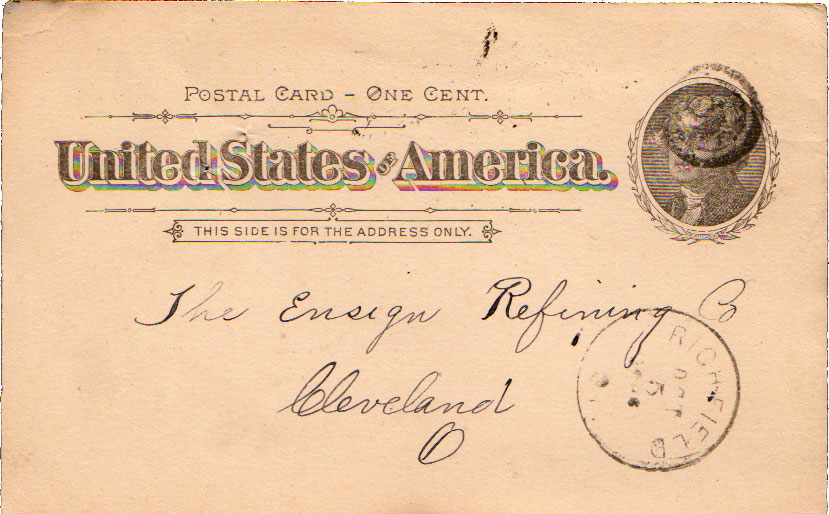 POSTAL CARD – ONE CENT.
United States OF America.
THIS SIDE IS FOR THE ADDRESS ONLY.
The Ensign Refining Co
Cleveland
O
RICHFIELD
OCT
5
O